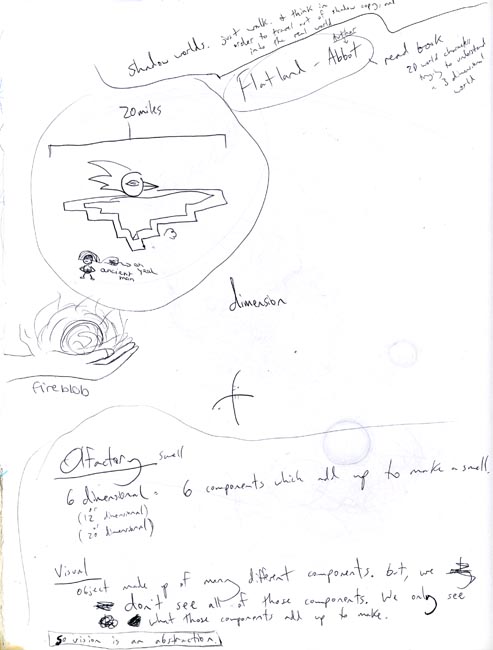 shadow worlds. just walk & think in
order to travel out of shadow copy, and
into the real world
Author
Flatland - Abbot
read book
2D world character
trying to understand
a 3 dimensional
world
20 miles
ancient
man
dimension
fireblob
Olfactory smell
6 dimensional = 6 components which add up to make a smell.
or
(12 dimensional)
or
(620 dimensional)
Visual
object made up of many different components. but, we
don't see all of those components. We only see
what those components add up to make.
So vision is an abstraction.